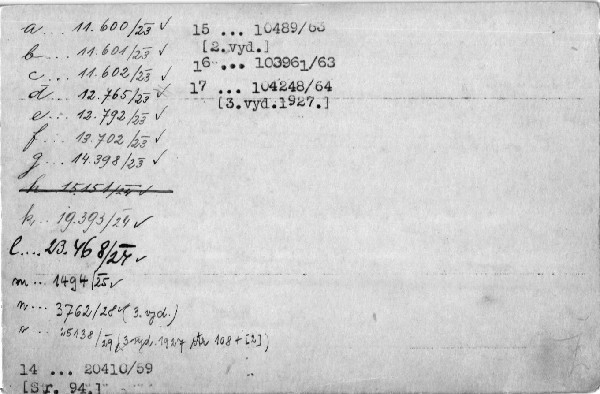 a ... 11.600/23 ✓
b ... 11.601/23 ✓
c ... 11.602/23 ✓
d ... 12.765/23 ✓
e ... 12.792/23 ✓
f ... 13.702/23 ✓
g ... 14.398/23 ✓
h ... 15.151/24 ✓
k ... 19.393/24 ✓
l .... 23.468/24 ✓
m ... 1494/25 ✓
n ... 3762/28 (3. vyd.)
25138/29 (3. vyd. 1927 str 108 + [2])
14 ... 20410/59
[Str. 94.]
15 ... 10489/63
[2.vyd.]
16 ... 103961/63
17 ... 104248/64
[3.vyd.1927.]